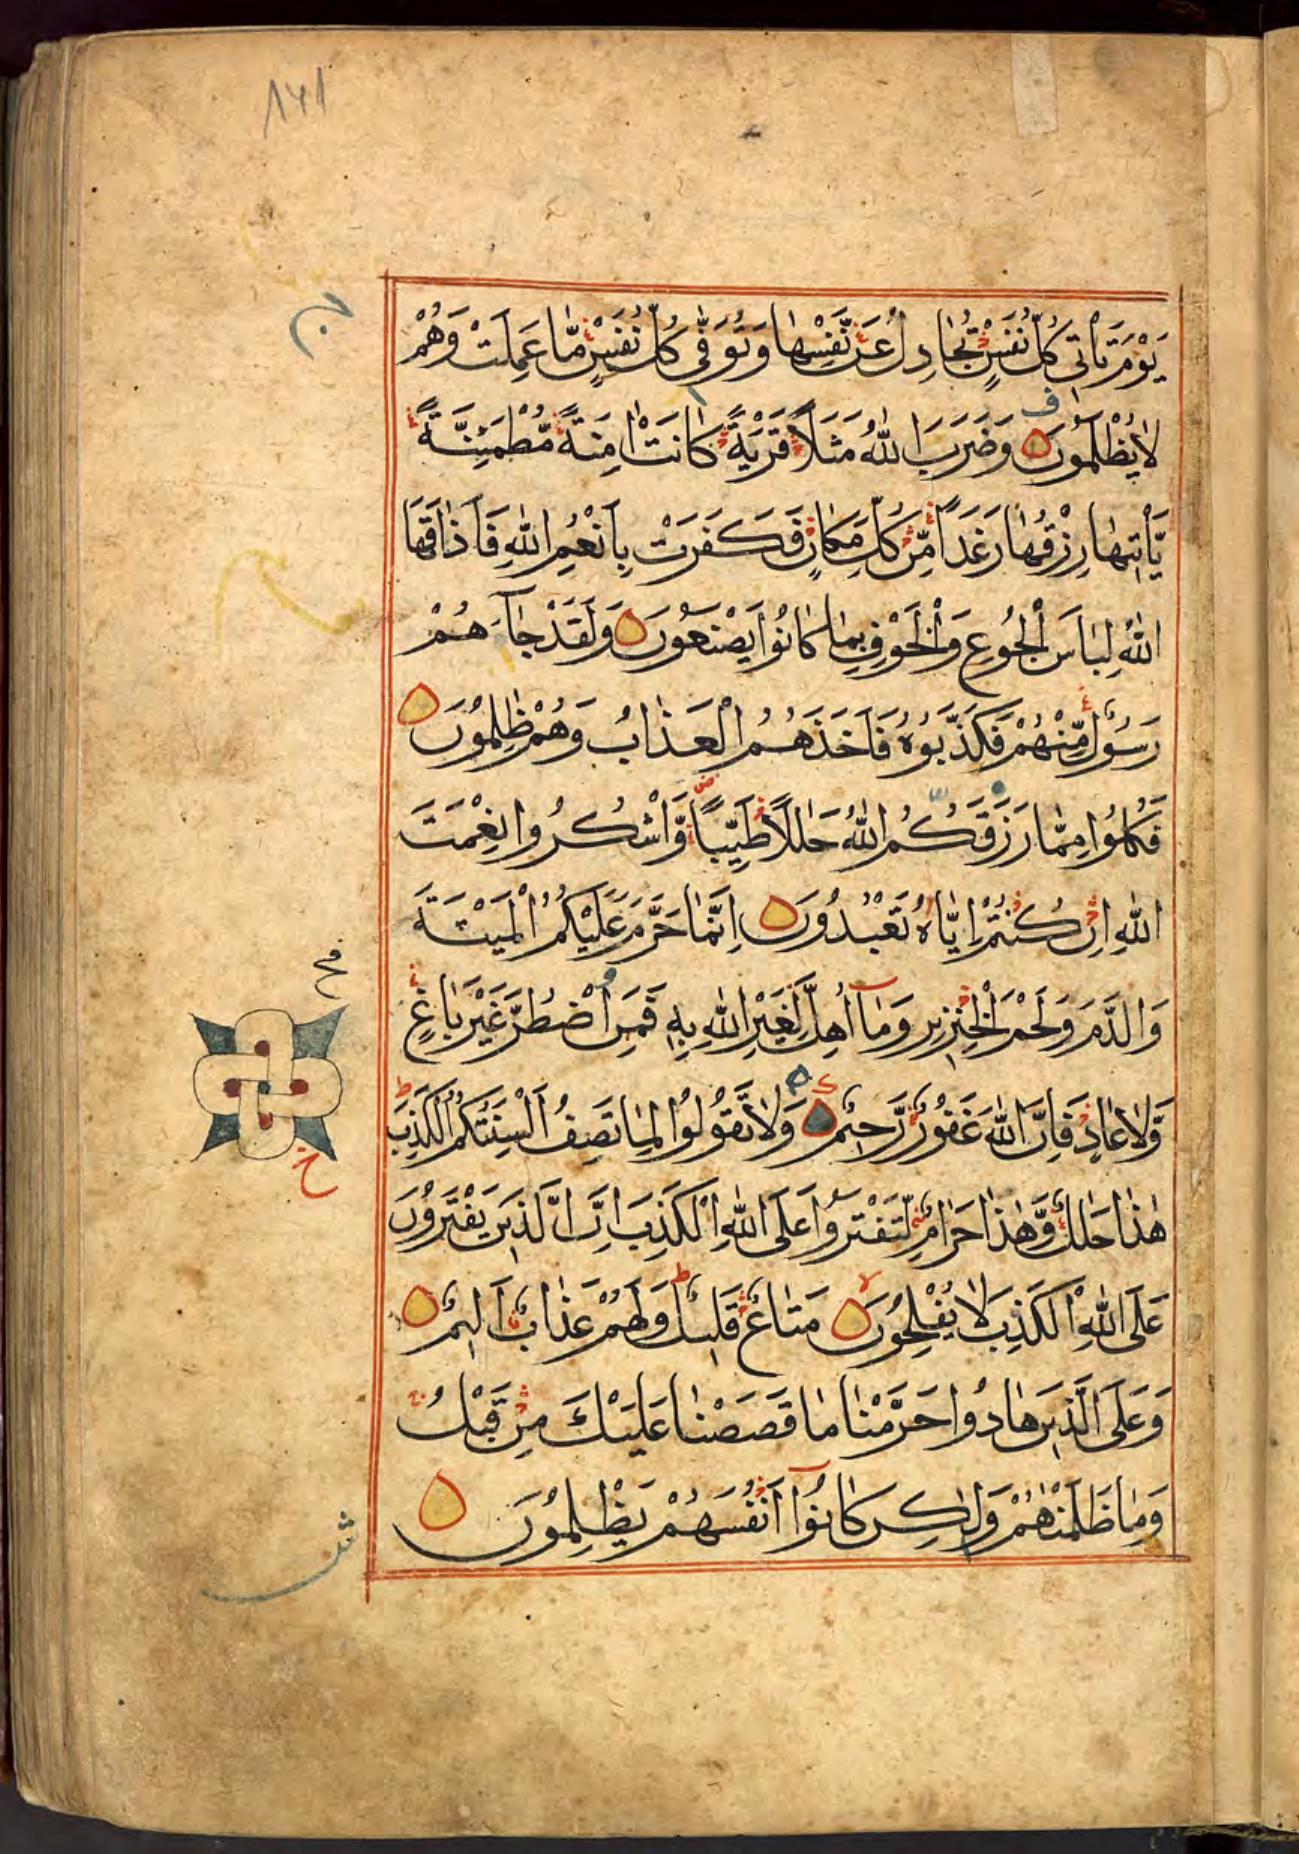 ١٤١
يَوْمَ تَأْتِى كُلُّ نَفْسٍ تُجَادِلُ عَنْ نَّفْسِهَا وَتُوَفّٰى كُلُّ نَفْسٍ مَّا عَمِلَتْ وَهُمْ
لَا يُظْلَمُوْنَ ۝ وَضَرَبَ اللّٰهُ مَثَلًا قَرْيَةً كَانَتْ اٰمِنَةً مُّطْمَئِنَّةً
يَّأْتِيْهَا رِزْقُهَا رَغَدًا مِّنْ كُلِّ مَكَانٍ فَكَفَرَتْ بِاَنْعُمِ اللّٰهِ فَاَذَاقَهَا
اللّٰهُ لِبَاسَ الْجُوْعِ وَالْخَوْفِ بِمَا كَانُوْا يَصْنَعُوْنَ ۝ وَلَقَدْ جَآءَهُمْ
رَسُوْلٌ مِّنْهُمْ فَكَذَّبُوْهُ فَاَخَذَهُمُ الْعَذَابُ وَهُمْ ظٰلِمُوْنَ ۝
فَكُلُوْا مِمَّا رَزَقَكُمُ اللّٰهُ حَلٰلًا طَيِّبًا وَّاشْكُرُوْا نِعْمَتَ
اللّٰهِ اِنْ كُنْتُمْ اِيَّاهُ تَعْبُدُوْنَ ۝ اِنَّمَا حَرَّمَ عَلَيْكُمُ الْمَيْتَةَ
وَالدَّمَ وَلَحْمَ الْخِنْزِيْرِ وَمَآ اُهِلَّ لِغَيْرِ اللّٰهِ بِهٖ فَمَنِ اضْطُرَّ غَيْرَ بَاغٍ
وَّلَا عَادٍ فَاِنَّ اللّٰهَ غَفُوْرٌ رَّحِيْمٌ ۝ وَلَا تَقُوْلُوْا لِمَا تَصِفُ اَلْسِنَتُكُمُ الْكَذِبَ
هٰذَا حَلٰلٌ وَّهٰذَا حَرَامٌ لِّتَفْتَرُوْا عَلَى اللّٰهِ الْكَذِبَ اِنَّ الَّذِيْنَ يَفْتَرُوْنَ
عَلَى اللّٰهِ الْكَذِبَ لَا يُفْلِحُوْنَ ۝ مَتَاعٌ قَلِيْلٌ وَلَهُمْ عَذَابٌ اَلِيْمٌ ۝
وَعَلَى الَّذِيْنَ هَادُوْا حَرَّمْنَا مَا قَصَصْنَا عَلَيْكَ مِنْ قَبْلُ
وَمَا ظَلَمْنٰهُمْ وَلٰكِنْ كَانُوْا اَنْفُسَهُمْ يَظْلِمُوْنَ ۝